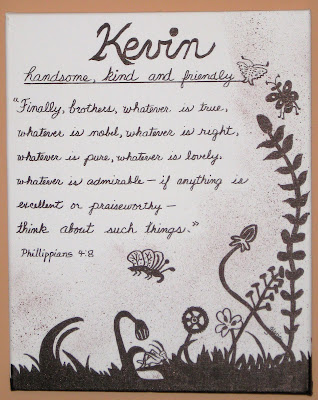 Kevin
handsome, kind and friendly
"Finally, brothers, whatever is true,
whatever is nobel, whatever is right,
whatever is pure, whatever is lovely,
whatever is admirable — if anything is
excellent or praiseworthy —
think about such things."
Phillippians 4:8